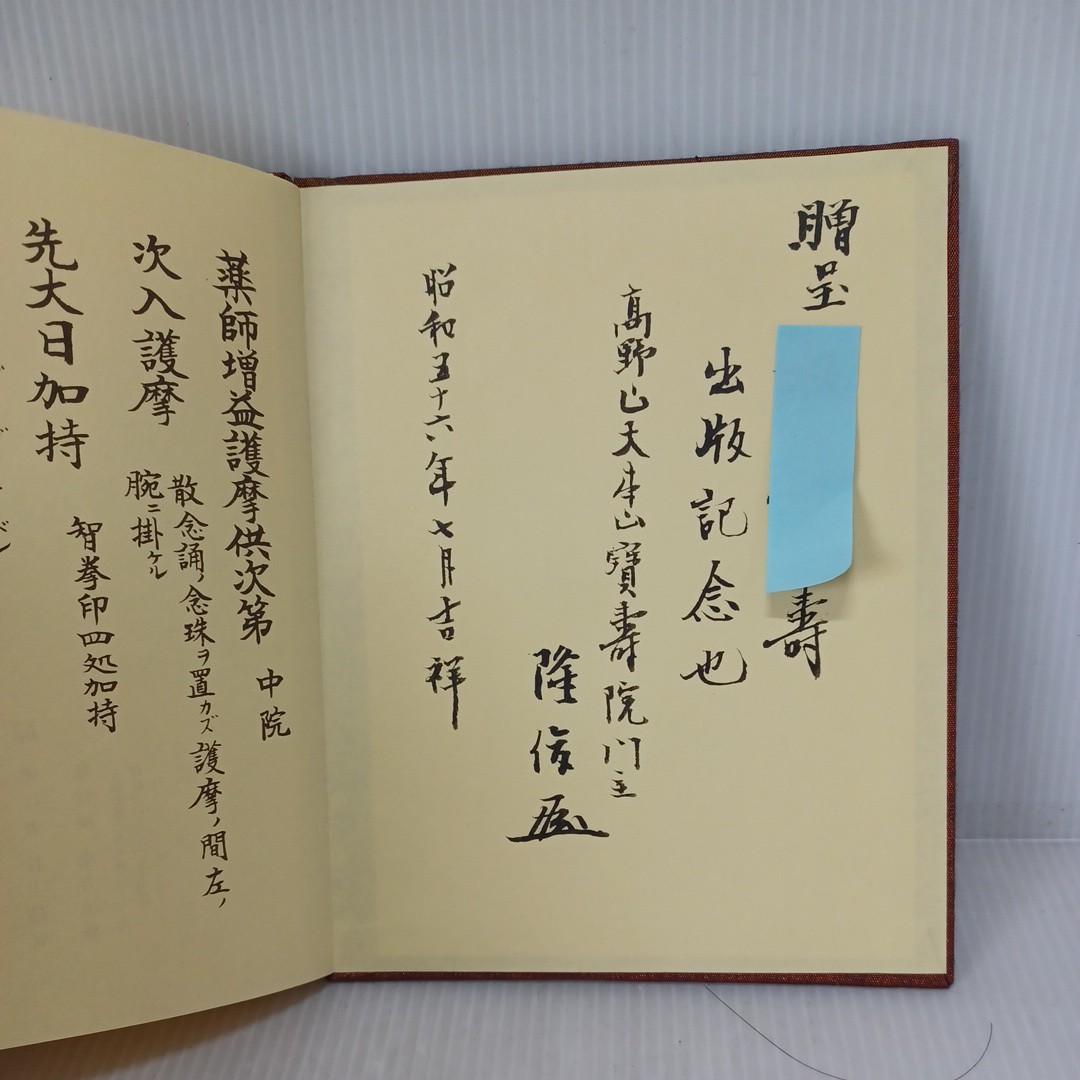 贈呈
壽
出版記念也
高野山大本山寶壽院门主
隆信
昭和五十六年七月吉祥
薬師増益護摩供次第 中院
次入護摩 散念誦ノ念珠ヲ置カズ護摩ノ間左ノ
腕ニ掛ケル
先大日加持 智拳印四処加持